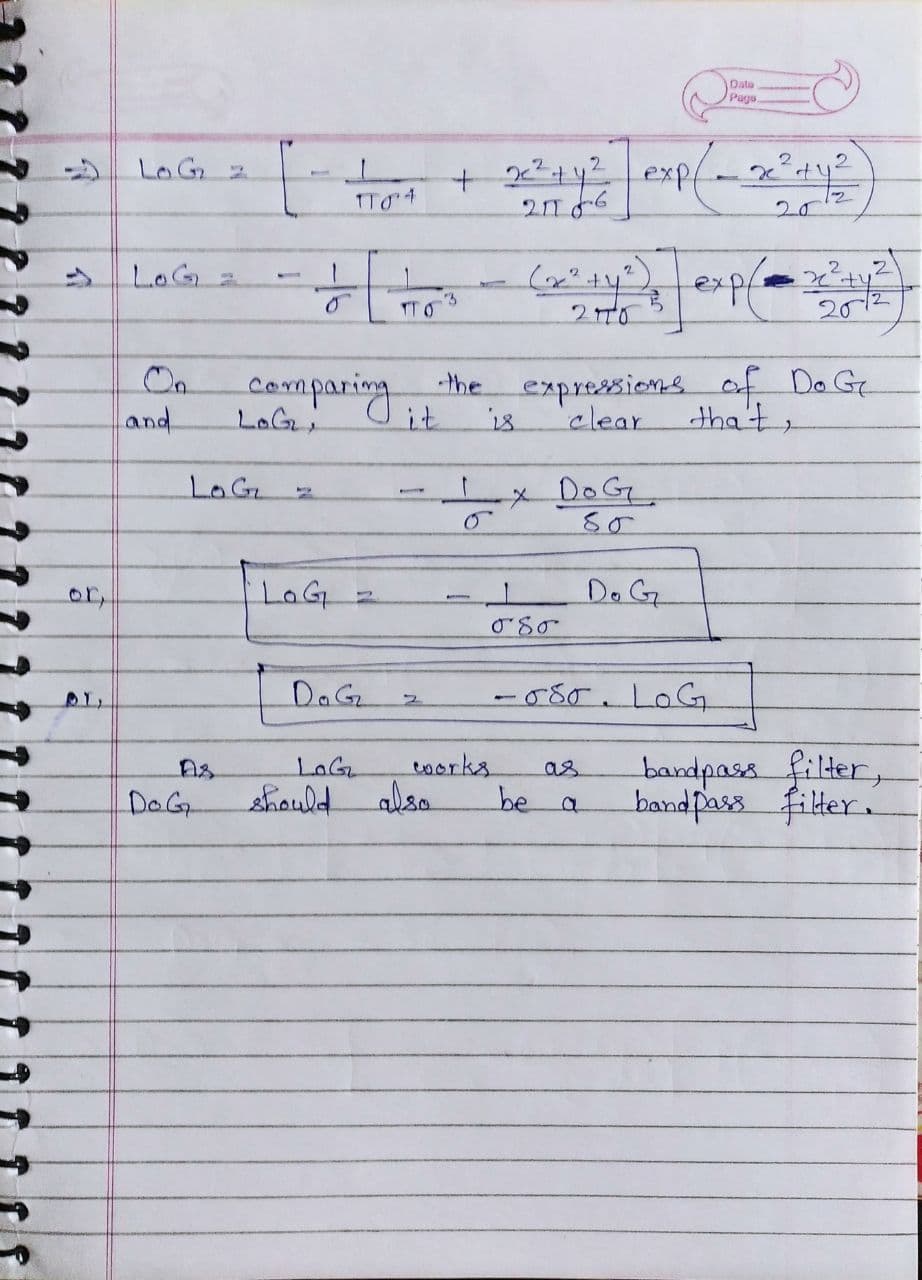 Data
Page
⇒ LoG = [ - 1/πσ⁴ + x²+y²/2πσ⁶ ] exp( - x²+y²/2σ² )
⇒ LoG = - 1/σ [ 1/πσ³ - (x²+y²)/2πσ⁵ ] exp( - x²+y²/2σ² )
On comparing the expressions of DoG
and LoG, it is clear that,
LoG = - 1/σ × DoG/δσ
or, LoG = - 1/σδσ DoG
or, DoG = - σδσ . LoG
As LoG works as bandpass filter,
DoG should also be a bandpass filter.